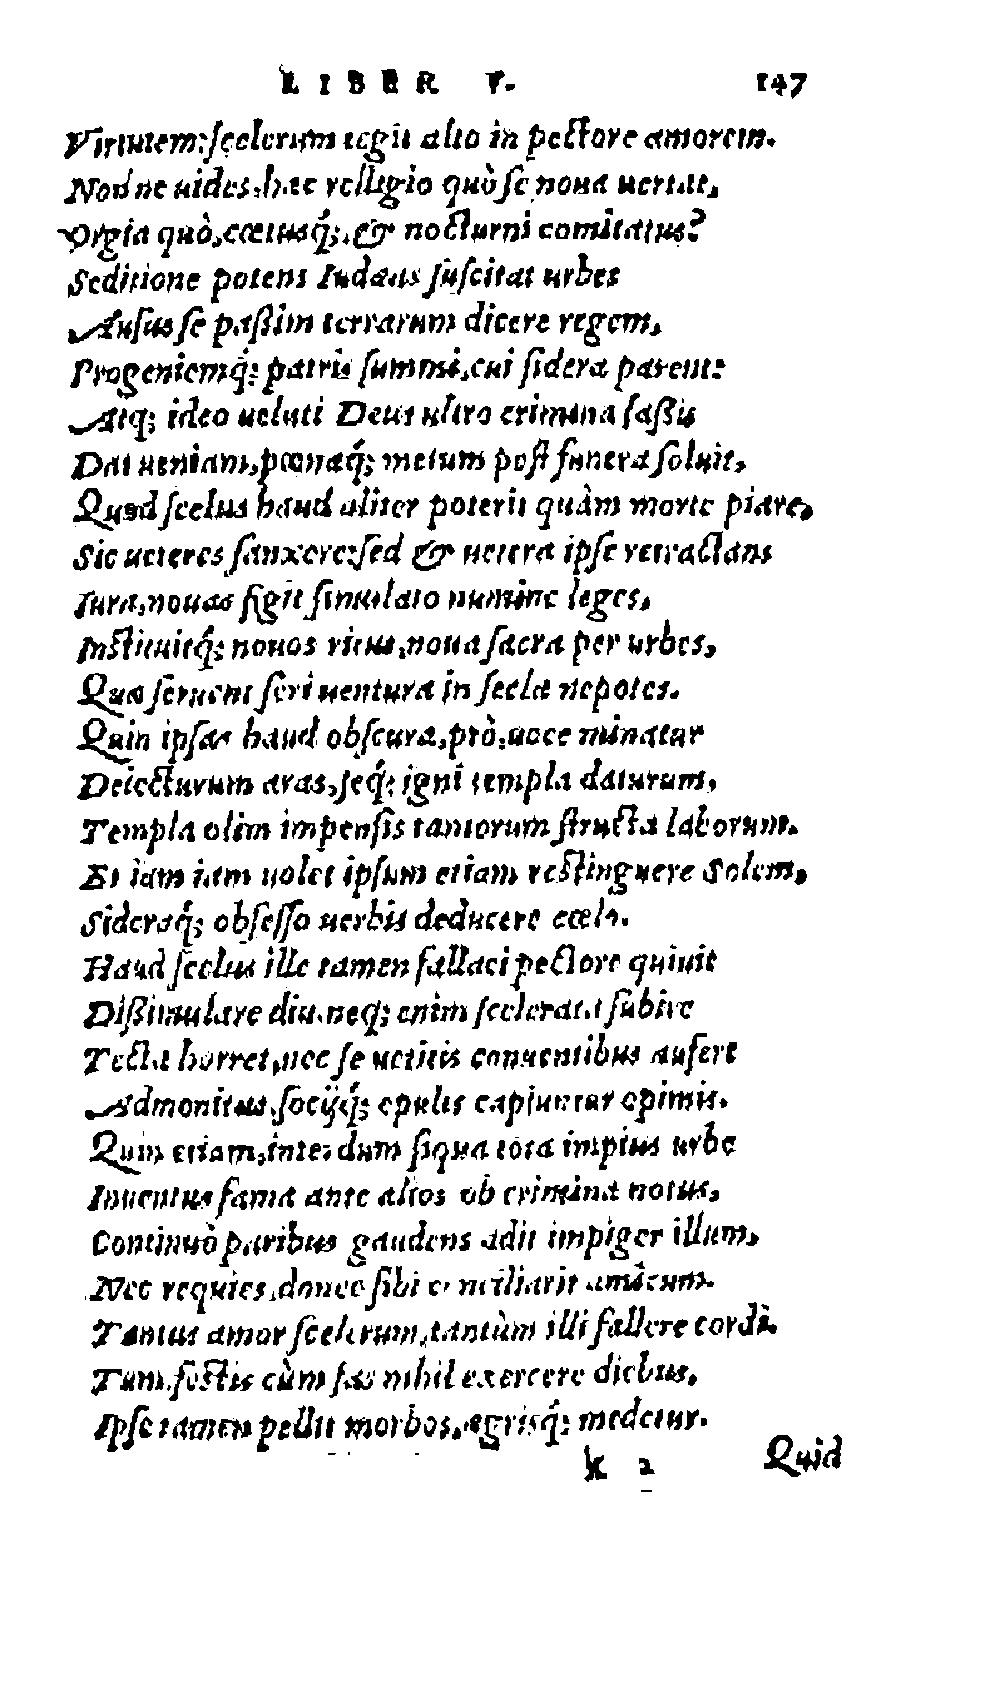 LIBER V. 147
Virtutem: scelerum tegit alto in pectore amorem.
Nonne uides, hæc relligio quò se noua uertat,
Orgia quò, cœtusq́;, & nocturni comitatus?
Seditione potens Iudæas suscitat urbes
Ausus se passim terrarum dicere regem,
Progeniemq́; patris summi, cui sidera parent:
Atq; ideo ueluti Deus ultro crimina fassis
Dat ueniam, pœnaq́; metum post funera soluit,
Quod scelus haud aliter poterit quàm morte piare,
Sic ueteres sanxere: sed & uetera ipse retractans
Iura, nouas figit simulato numine leges,
Instituitq́; nouos ritus, noua sacra per urbes,
Quæ seruent seri uentura in secla nepotes.
Quin ipsas haud obscura, prò, uoce minatur
Deiecturum aras, seq́; igni templa daturum,
Templa olim impensis tantorum structa laborum.
Et iam iam uolet ipsum etiam restinguere Solem,
Sideraq́; obsesso uerbis deducere cœlo.
Haud scelus ille tamen fallaci pectore quiuit
Dissimulare diu. neq; enim scelerata subire
Tecta horret, nec se uetitis conuentibus aufert
Admonitus, socijq́; epulis capiuntur opimis.
Quin etiam, interdum siqua tota impius urbe
Inuentus fama ante alios ob crimina notus,
Continuò paribus gaudens adit impiger illum,
Nec requies, donec sibi conciliarit amicum.
Tantus amor scelerum, tantùm illi fallere cordi.
Tum festis cùm fas nihil exercere diebus,
Ipse tamen pellit morbos, ægrisq́; medetur.
K 2 Quid